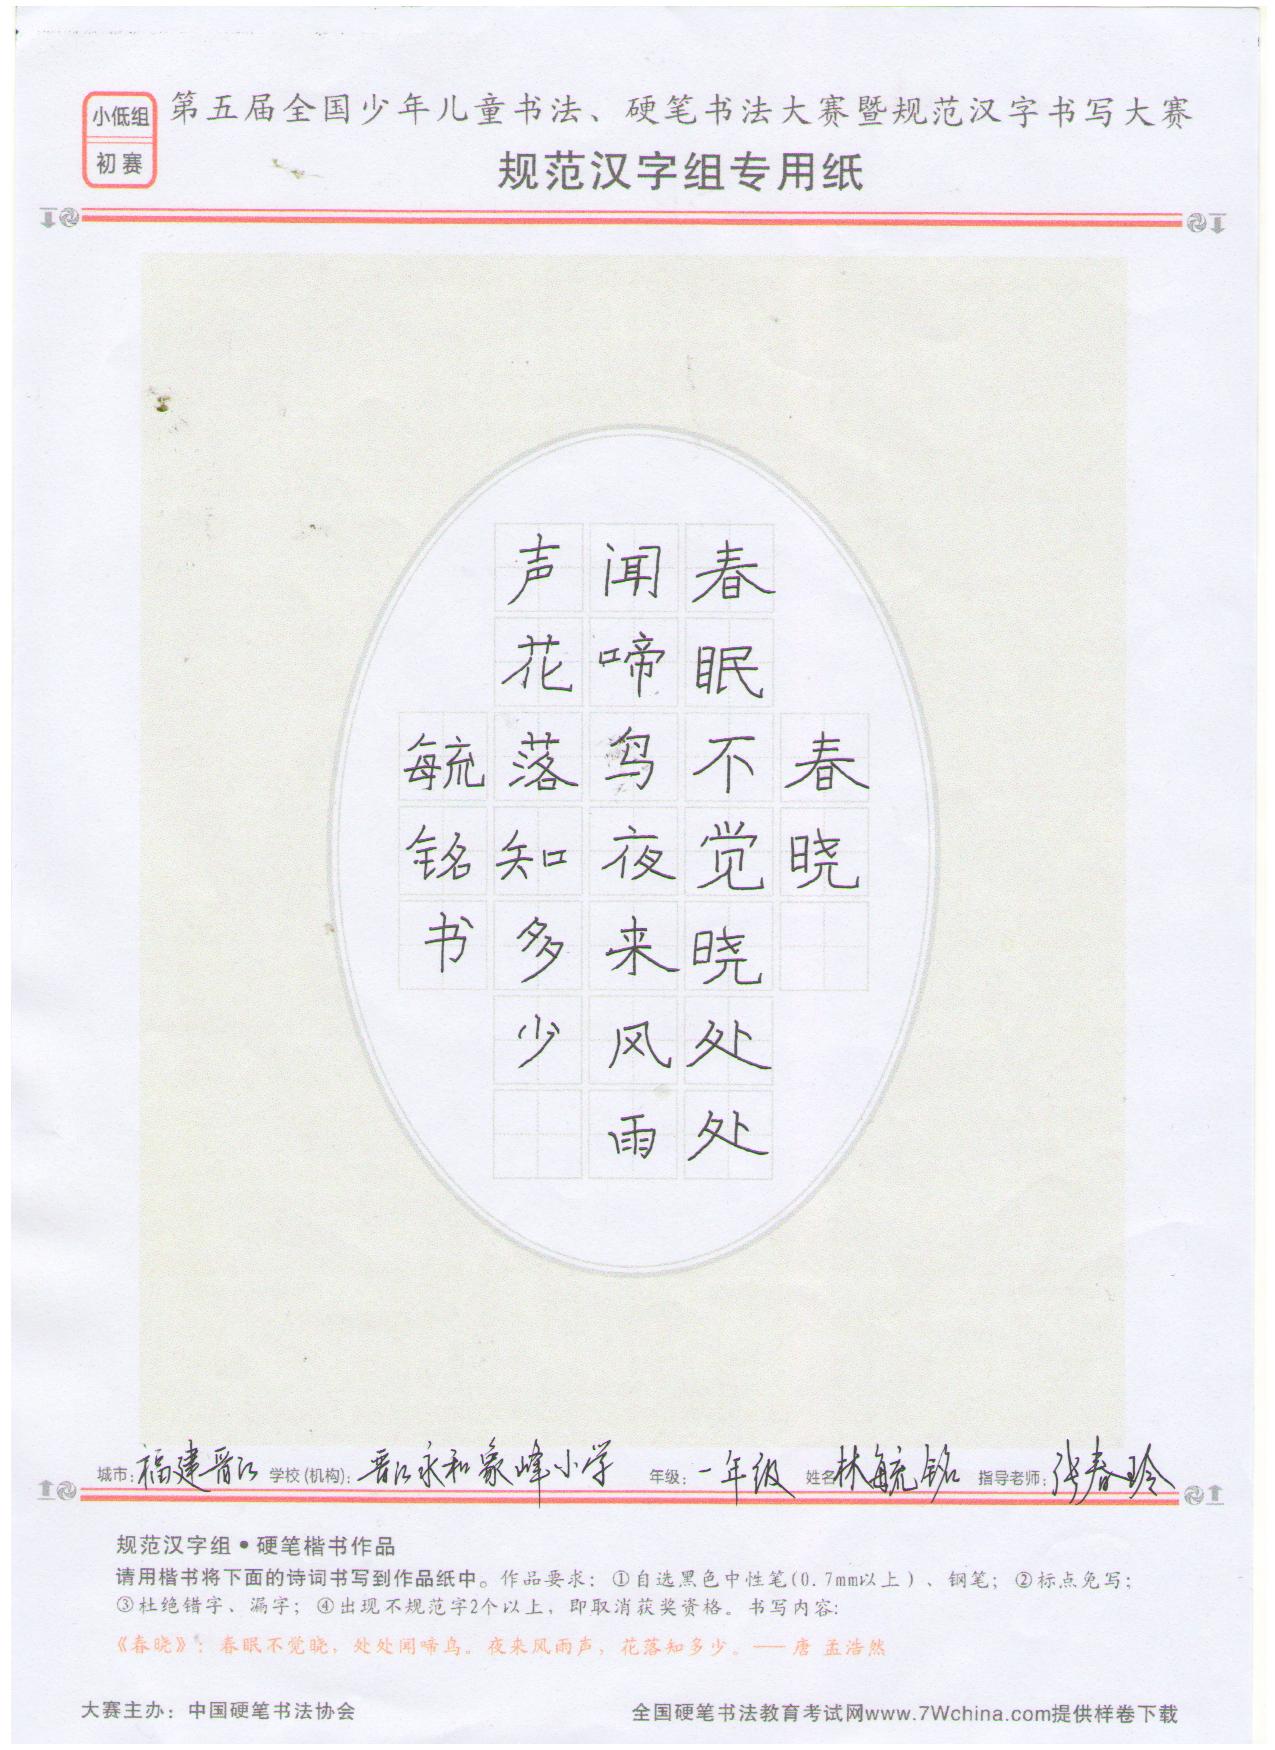 小低组
初赛
第五届全国少年儿童书法、硬笔书法大赛暨规范汉字书写大赛
规范汉字组专用纸
春晓
春眠不觉晓处处
闻啼鸟夜来风雨
声花落知多少
毓铭书
城市：福建晋江 学校(机构)：晋江永和象峰小学 年级：一年级 姓名 林毓铭 指导老师：张春玲
规范汉字组●硬笔楷书作品
请用楷书将下面的诗词书写到作品纸中。作品要求：①自选黑色中性笔(0.7mm以上)、钢笔；②标点免写；
③杜绝错字、漏字；④出现不规范字2个以上，即取消获奖资格。书写内容：
《春晓》：春眠不觉晓，处处闻啼鸟。夜来风雨声，花落知多少。——唐 孟浩然
大赛主办：中国硬笔书法协会
全国硬笔书法教育考试网www.7Wchina.com提供样卷下载